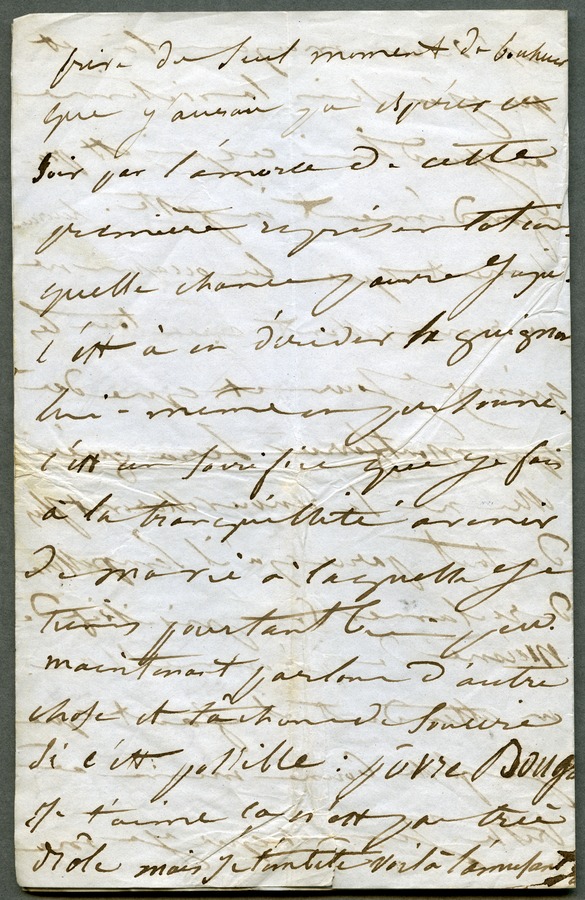 privé du seul moment de bonheur
que j'aurais pu espérer ce
soir par l'amorce de cette
première représentation
quelle chance pauvre
c'est à en décider le guignon
lui-même en personne.
c'est un sacrifice que je fais
à la tranquillité avenir
de marie à laquelle je
tiens pourtant bien peu.
maintenant parlons d'autre
chose et tâchons de sourire
si c'est possible. pôvre
je t'aime ça n'est pas très
drôle mais je t'embête voilà l'amusant